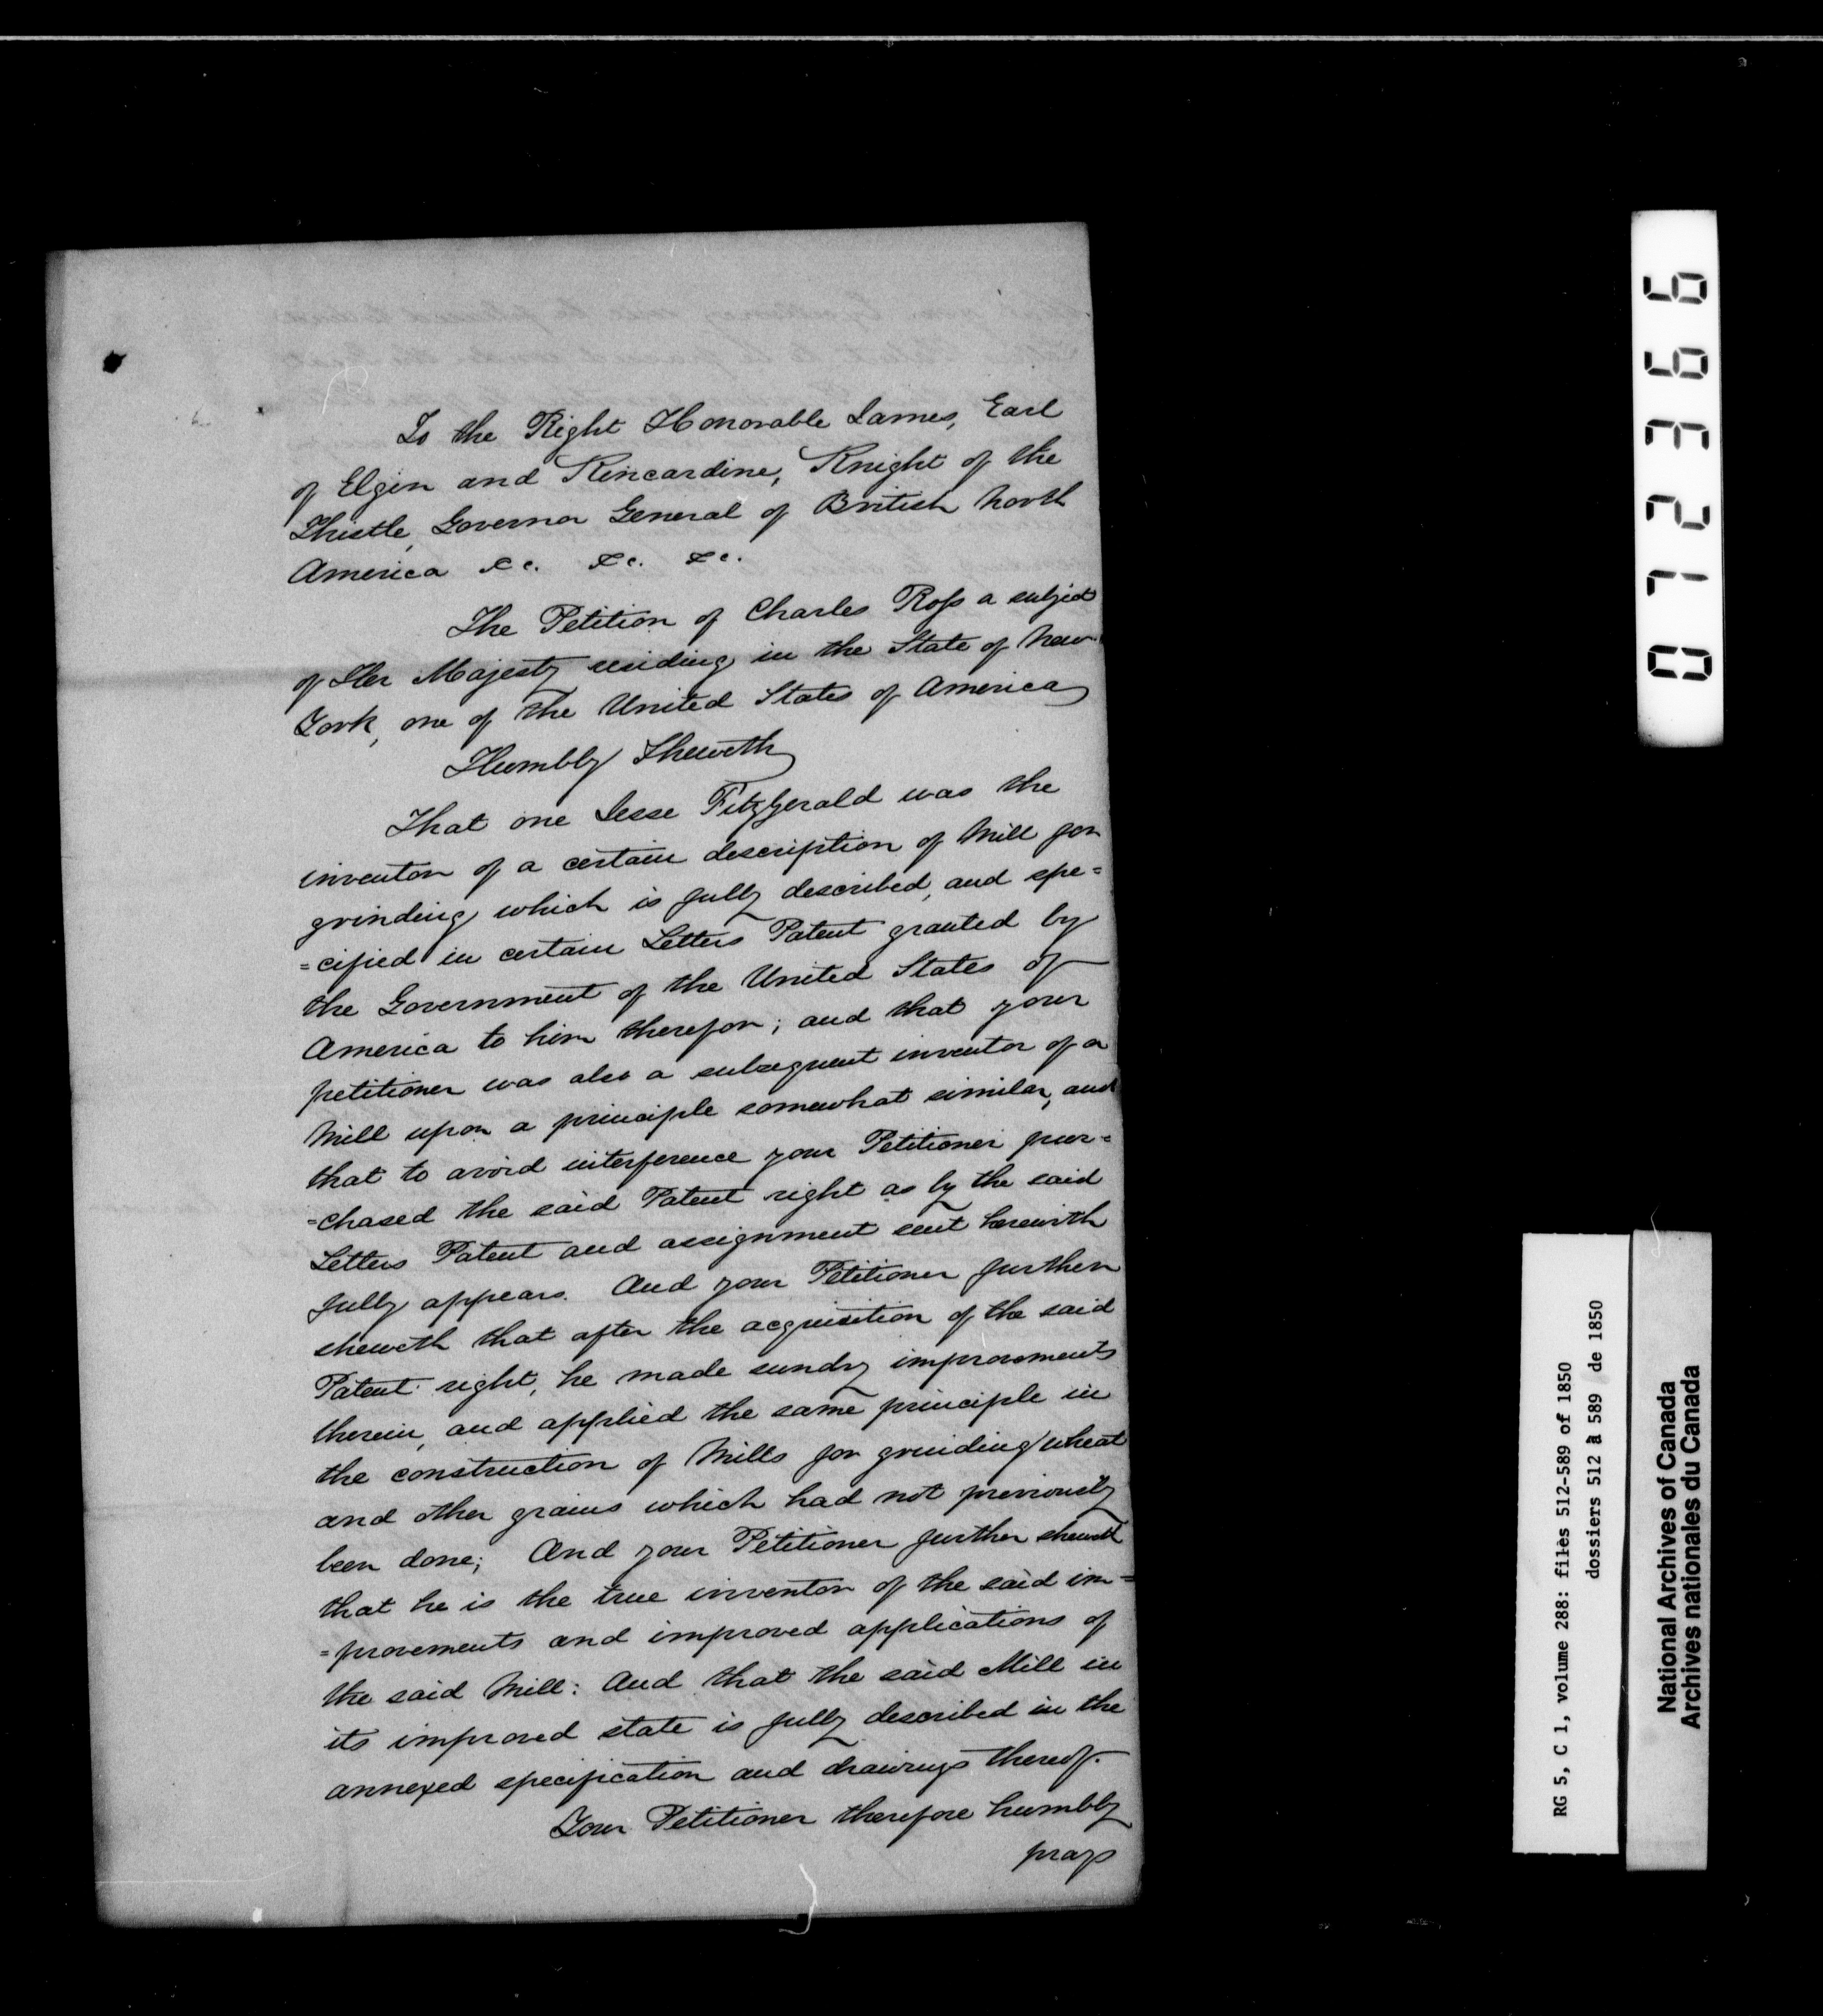 To the Right Honorable James, Earl
of Elgin and Kincardine, Knight of the
Thistle, Governor General of British North
America &c. &c. &c.
The Petition of Charles Roſs a subject
of Her Majesty residing in the State of New
York, one of the United States of America
Humbly Sheweth
That one Jesse Fitzgerald was the
inventor of a certain description of Mill for
grinding which is fully described, and spe=
=cified in certain Letters Patent granted by
the Government of the United States of
America to him therefor; and that your
petitioner was also a subsequent inventor of a
Mill upon a principle somewhat similar, and
that to avoid interference your Petitioner pur=
=chased the said Patent right as by the said
Letters Patent and assignment sent herewith
fully appears. And your Petitioner further
sheweth that after the acquisition of the said
Patent right, he made sundry improvements
therein, and applied the same principle in
the construction of Mills for grinding wheat
and other grains which had not previously
been done; And your Petitioner further sheweth
that he is the true inventor of the said im=
=provements and improved applications of
the said Mill: And that the said Mill in
its improved state is fully described in the
annexed specification and drawings thereof.
Your Petitioner therefore humbly
prays
072366
RG 5, C 1, volume 288: files 512-589 of 1850
dossiers 512 à 589 de 1850
National Archives of Canada
Archives nationales du Canada